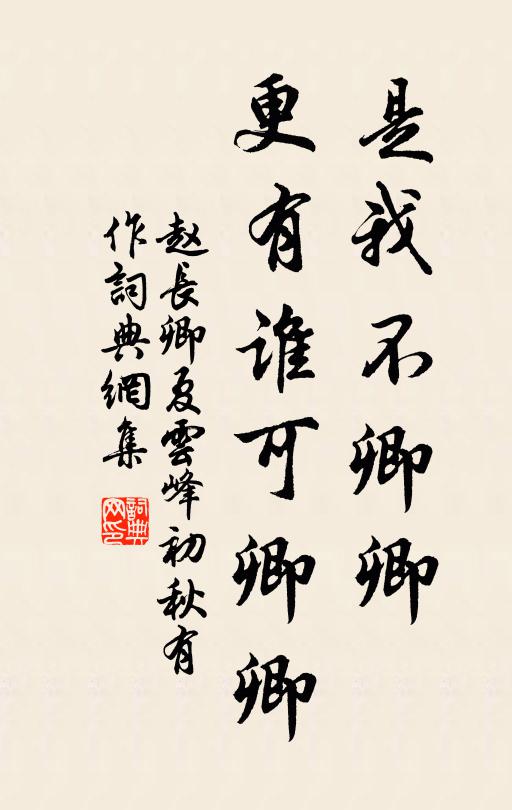 是我不卿卿
更有谁可卿卿
赵長卿夏雲峰初秋有
作詞典網集
詞典
网印